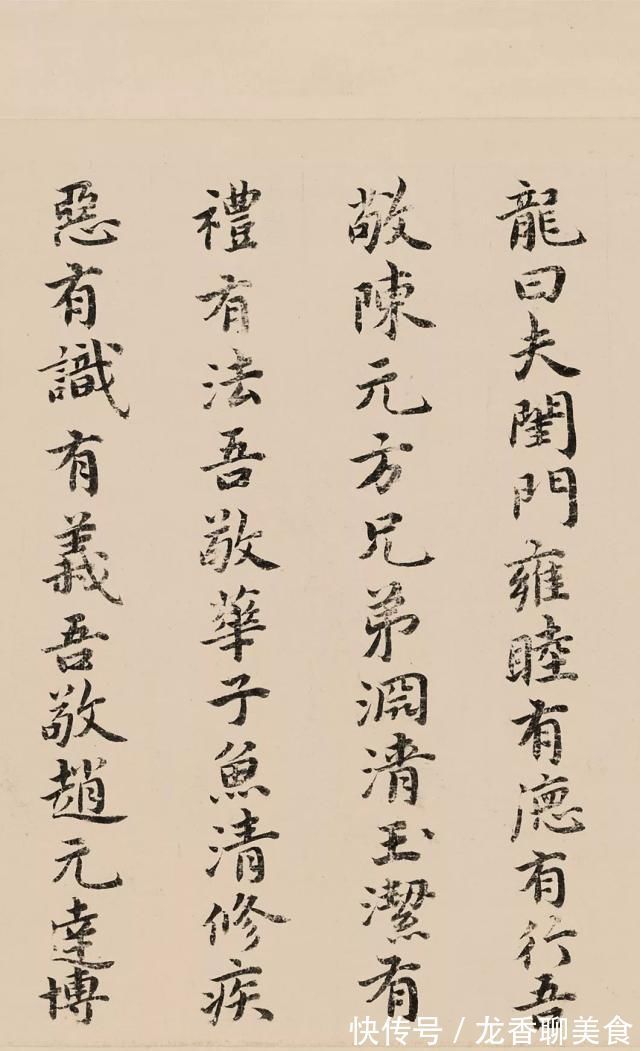 龍曰夫閨門雍睦有德有行吾
敬陳元方兄弟淵清玉潔有
禮有法吾敬華子魚清修疾
惡有識有義吾敬趙元達博
快传号／龙香聊美食